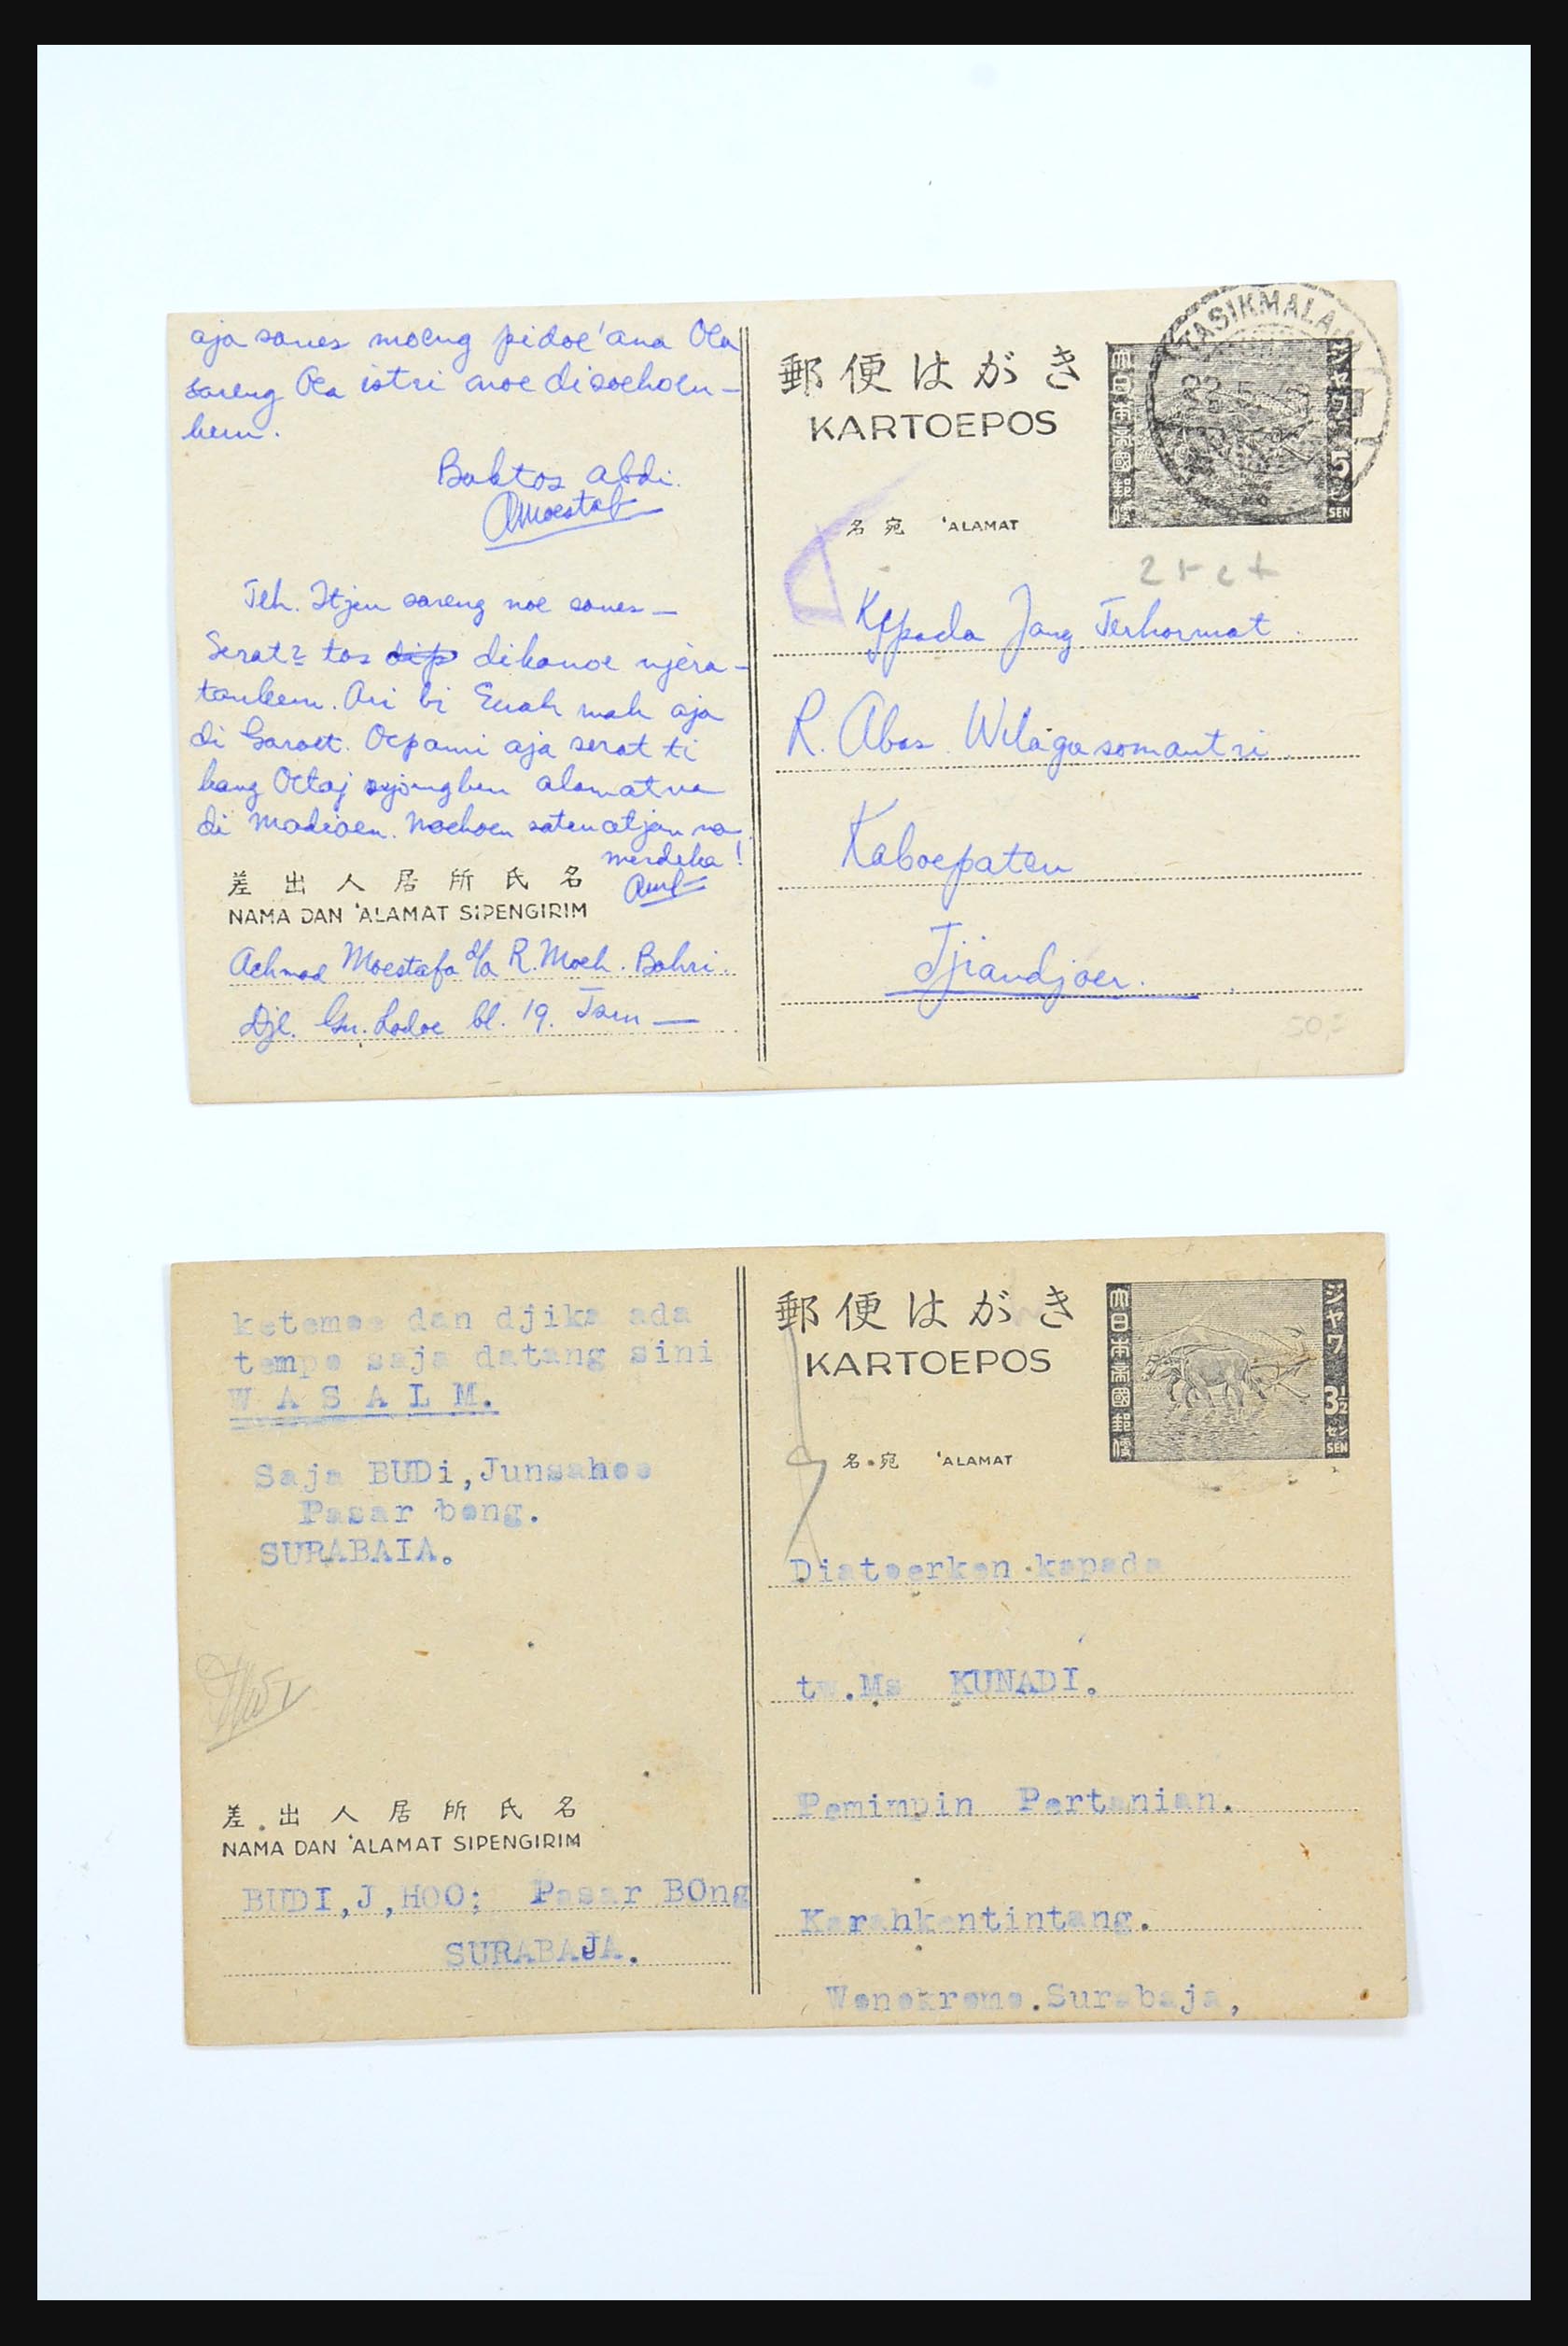 aja sanes moeng pidoe'ana Oea
sareng Oea istri anoe disoehoen-
keun.
Baktos abdi.
AMoestaf
Teh. Itjeu sareng noe sanes —
Serat2 tos dikanoe njèra-
tankeun. Ari bi Enah mah aja
di Garoet. Oepami aja serat ti
kang Oetaj alamatna
di Madioen. Noehoen
merdeka!
差出人居所氏名
NAMA DAN 'ALAMAT SIPENGIRIM
Achmad Moestafa d/a R. Moeh. Bahri.
Djl. Gn. Ladoe bl. 19. Tsm —
郵便はがき
KARTOEPOS
名宛 'ALAMAT
TASIKMALAJA
大日本帝國郵便
ジャワ
5
セン
SEN
Kepada Jang Terhormat
R. Abas Wilagasomantri
Kaboepaten
Tjiandjoer.
50,=
ketemoe dan djika ada
tempo saja datang sini
W A S A L M.
Saja BUDi,Junsahoo
Pasar bong.
SURABAIA.
差出人居所氏名
NAMA DAN 'ALAMAT SIPENGIRIM
BUDI,J,HOO; Pasar BOng
SURABAJA.
郵便はがき
KARTOEPOS
名宛 'ALAMAT
大日本帝國郵便
ジャワ
3½
セン
SEN
Diatoerken kapada
tw.Ms KUNADI.
Pemimpin Pertanian.
Karahkentintang.
Wonokromo.Surabaja,